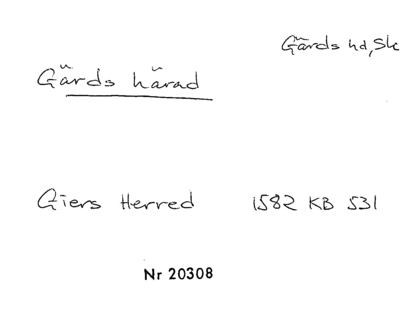 Gärds hd, Sk
Gärds härad
Giers Herred 1582 KB 531
Nr 20308